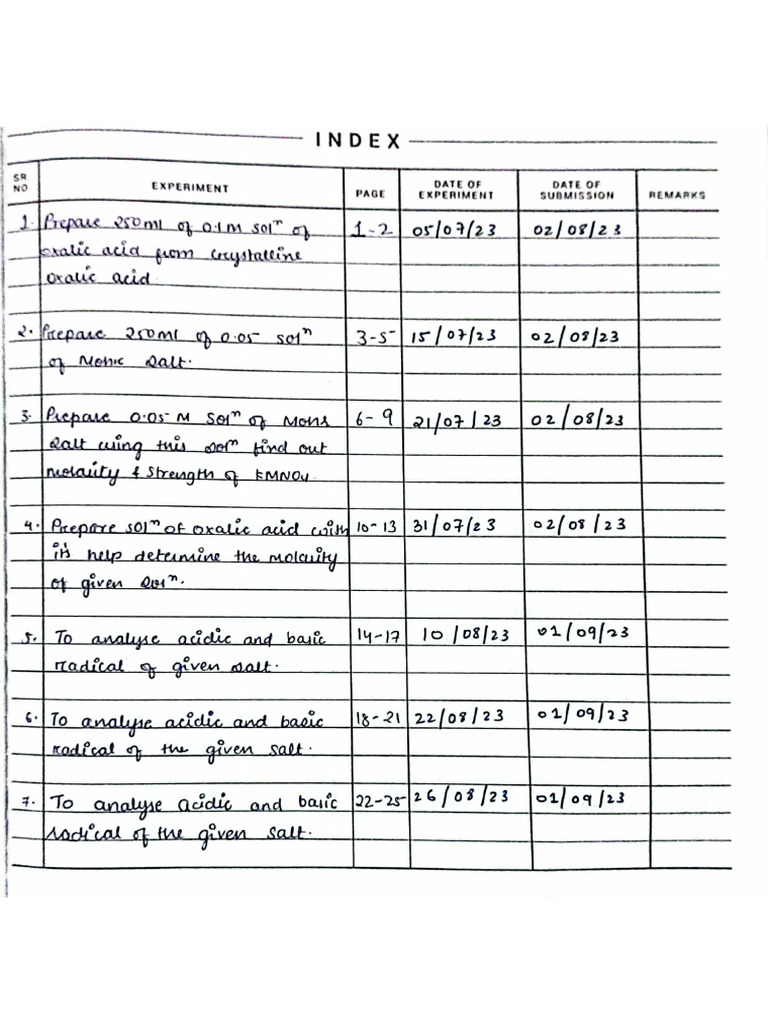 INDEX
SR NO EXPERIMENT PAGE DATE OF EXPERIMENT DATE OF SUBMISSION REMARKS
1. Prepare 250ml of 0.1M solⁿ of 1-2 05/07/23 02/08/23
oxalic acid from crystalline
oxalic acid
2. Prepare 250ml of 0.05 solⁿ 3-5 15/07/23 02/08/23
of Mohr salt.
3. Prepare 0.05 M solⁿ of Mohs 6-9 21/07/23 02/08/23
salt using this solⁿ find out
molarity & strength of KMNO4
4. Prepare solⁿ of oxalic acid with 10-13 31/07/23 02/08/23
it's help determine the molarity
of given solⁿ.
5. To analyse acidic and basic 14-17 10/08/23 01/09/23
radical of given salt.
6. To analyse acidic and basic 18-21 22/08/23 01/09/23
radical of the given salt.
7. To analyse acidic and basic 22-25 26/08/23 01/09/23
radical of the given salt.